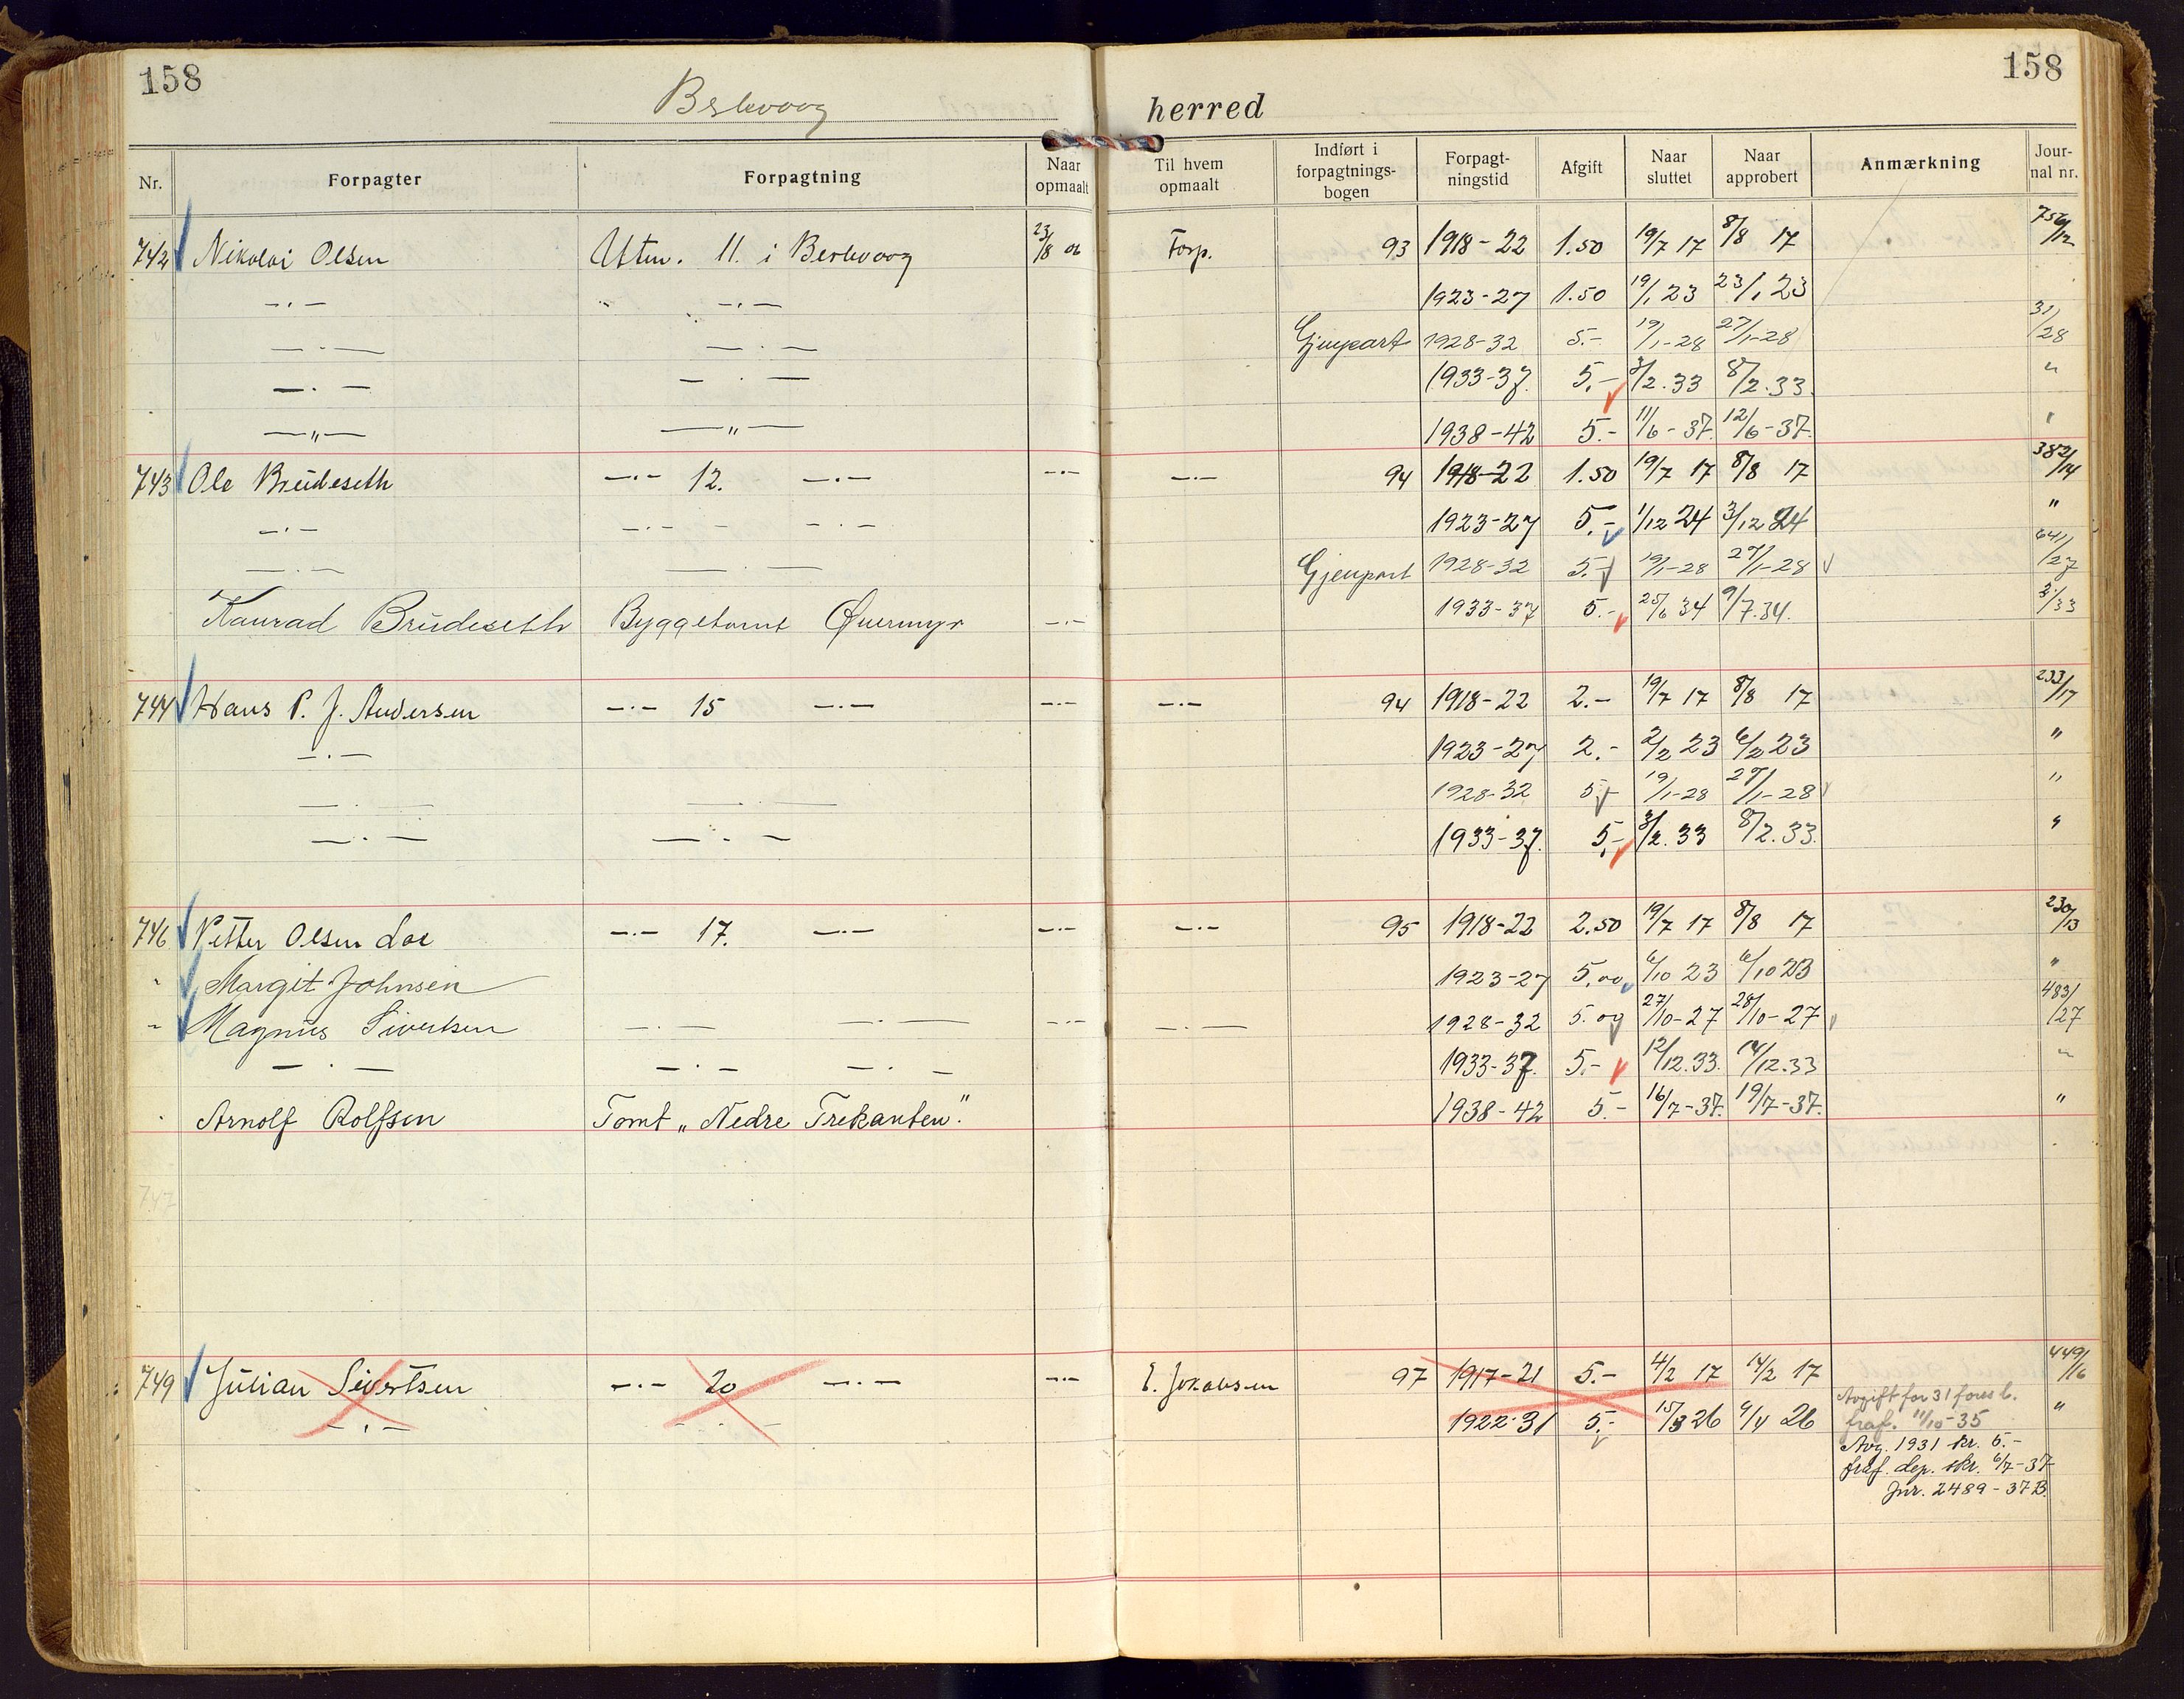 158
158
Berlevaag herred
Nr. Forpagter Forpagtning Naar opmaalt Til hvem opmaalt Indført i forpagtnings-bogen Forpagt-ningstid Afgift Naar sluttet Naar approbert Anmærkning Jour-nal nr.
742 Nikolai Olsen Utm. 11. i Berlevaag 23/8 06 Forp. 93 1918-22 1.50 19/7 17 8/8 17
—·— —·— 1923-27 1.50 19/1 23 23/1 23
—·— —·— Gjenpart 1928-32 5.- 19/1-28 27/1-28 31/28
—·— —·— 1933-37. 5.- 3/2.33 8/2.33. "
—"— —"— 1938-42 5.- 11/6-37. 12/6-37. "
743 Ole Brüdeseth —·— 12. —·— —·— —·— 94 1918-22 1.50 19/7 17 8/8 17 382/14
—·— —·— —·— 1923-27 5.- 1/12 24 3/12 24 "
—·— —·— Gjenpart 1928-32 5.- 19/1-28 27/1-28 641/27
Konrad Brüdeseth Byggetomt Øvermyr —·— 1933-37 5.- 25/6 34 9/7.34.
744 Hans P. J. Andersen —·— 15 —·— —·— —·— 94 1918-22 2.- 19/7 17 8/8 17 233/17
—·— 1923-27 2.- 2/2 23 6/2 23 "
—·— —·— 1928-32 5.- 19/1-28 27/1-28 "
—·— —·— 1933-37. 5.- 3/2.33 8/2.33. "
746 Petter Olsen Loe —·— 17. —·— —·— —·— 95 1918-22 2.50 19/7 17 8/8 17 230/13
" Margit Johnsen 1923-27 5,00 6/10 23 6/10 23 "
" Magnus Sivertsen —·— —·— —·— —·— 1928-32 5.00 27/10-27 28/10-27 483/27
—·— —·— —·— 1933-37. 5.- 12/12.33. 14/12.33 "
Arnolf Rolfsen Tomt „Nedre Trekanten". 1938-42 5.- 16/7-37. 19/7-37. "
747
749 Julian Sivertsen —·— 20 —·— —·— E. Jakobsen 97 1917-21 5.- 4/2 17 14/2 17 449/16
—·— —·— 1922-31 5.- 15/3 26 9/4 26 "
Avgift for 31
fraf. 11/10-35
Avg. 1931 kr. 5.-
fraf. dep. skr. 6/7-37
Jnr. 2489-37 B.